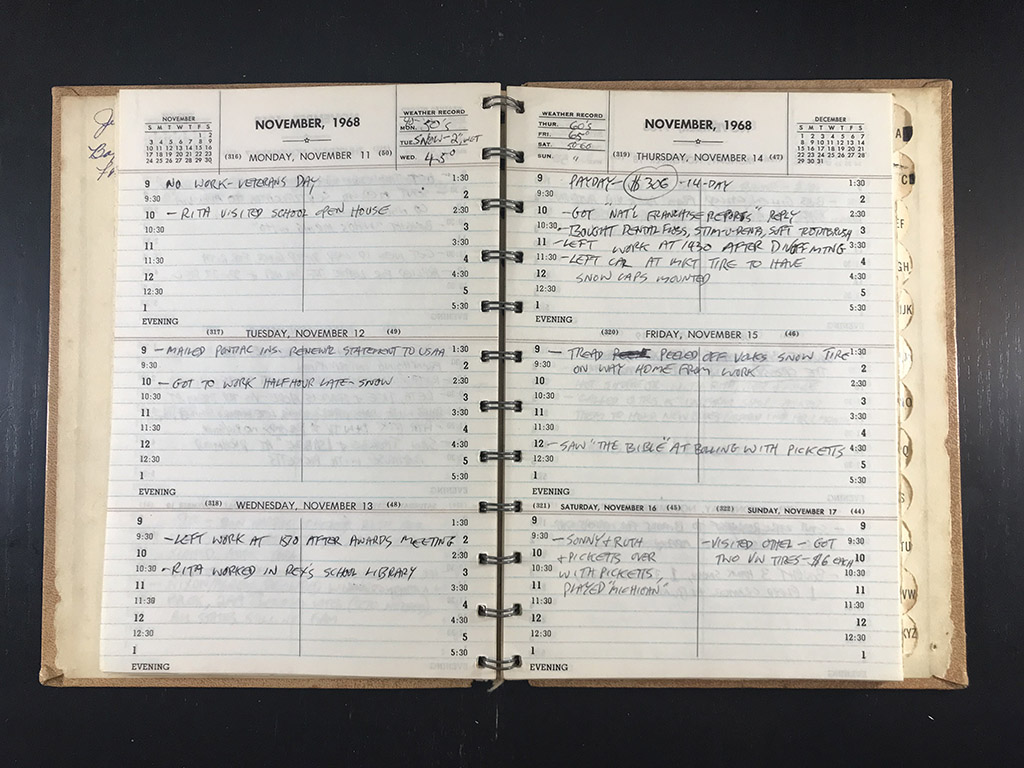 NOVEMBER
S M T W T F S
1 2
3 4 5 6 7 8 9
10 11 12 13 14 15 16
17 18 19 20 21 22 23
24 25 26 27 28 29 30
NOVEMBER, 1968
WEATHER RECORD
MON. 50's
TUE. SNOW-2", WET
WED. 45°
(316) MONDAY, NOVEMBER 11 (50)
9 NO WORK - VETERANS DAY 1:30
9:30 2
10 - RITA VISITED SCHOOL OPEN HOUSE 2:30
10:30 3
11 3:30
11:30 4
12 4:30
12:30 5
1 5:30
EVENING
(317) TUESDAY, NOVEMBER 12 (49)
9 - MAILED PONTIAC INS. RENEWAL STATEMENT TO USAA 1:30
9:30 2
10 - GOT TO WORK HALF HOUR LATE - SNOW 2:30
10:30 3
11 3:30
11:30 4
12 4:30
12:30 5
1 5:30
EVENING
(318) WEDNESDAY, NOVEMBER 13 (48)
9 1:30
9:30 - LEFT WORK AT 1510 AFTER AWARDS MEETING 2
10 2:30
10:30 - RITA WORKED IN REX'S SCHOOL LIBRARY 3
11 3:30
11:30 4
12 4:30
12:30 5
1 5:30
EVENING
WEATHER RECORD
THUR. 60's
FRI. 65°
SAT. 50-60
SUN. "
NOVEMBER, 1968
DECEMBER
S M T W T F S
1 2 3 4 5 6 7
8 9 10 11 12 13 14
15 16 17 18 19 20 21
22 23 24 25 26 27 28
29 30 31
(319) THURSDAY, NOVEMBER 14 (47)
9 PAYDAY - $306 - 14-DAY 1:30
9:30 2
10 - GOT "NAT'L FRANCHISE REPORTS" REPLY 2:30
10:30 - BOUGHT DENTAL FLOSS, STIM-U-DENTS, SOFT TOOTHBRUSH 3
11 - LEFT WORK AT 1430 AFTER DINFF MTNG 3:30
11:30 - LEFT CAR AT MKT TIRE TO HAVE 4
12 SNOW CAPS MOUNTED 4:30
12:30 5
1 5:30
EVENING
(320) FRIDAY, NOVEMBER 15 (46)
9 - TREAD PEELED OFF VOLKS SNOW TIRE 1:30
9:30 ON WAY HOME FROM WORK 2
10 2:30
10:30 3
11 3:30
11:30 4
12 - SAW "THE BIBLE" AT BOLLING WITH PICKETTS 4:30
12:30 5
1 5:30
EVENING
(321) SATURDAY, NOVEMBER 16 (45)
9
9:30 - SONNY + RUTH
10 + PICKETTS OVER
10:30 WITH PICKETTS,
11 PLAYED "MICHIGAN"
11:30
12
12:30
1
EVENING
(322) SUNDAY, NOVEMBER 17 (44)
9
- VISITED OTHEL - GOT 9:30
TWO VW TIRES - $6 EACH 10
10:30
11
11:30
12
12:30
1
A
C
EF
GH
IJK
Q
S
TU
VW
XYZ